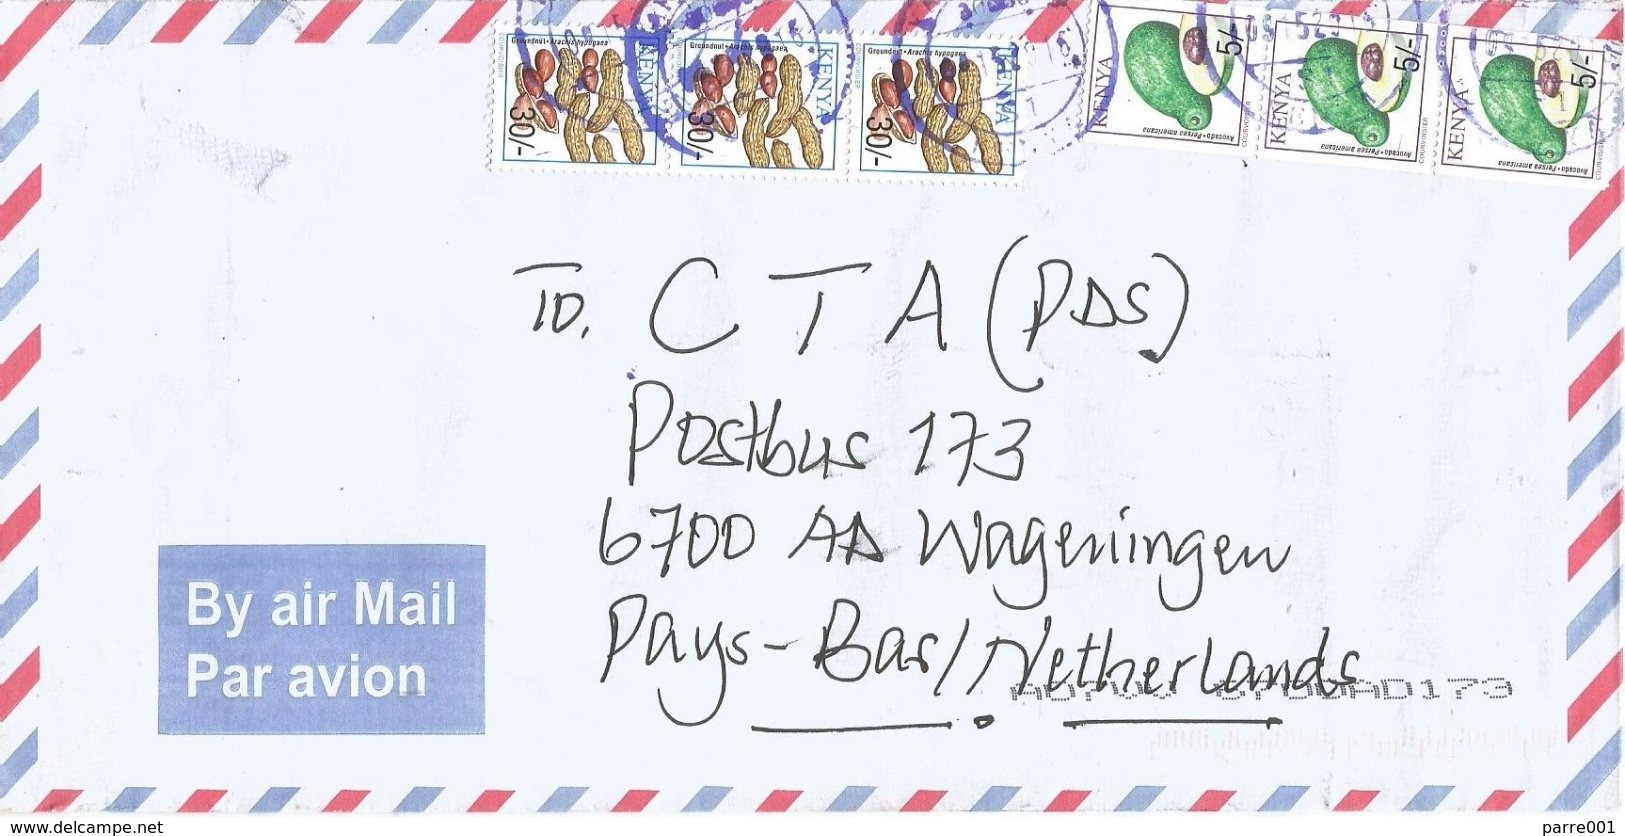 Groundnut • Arachis hypogaea
KENYA
30/-
COURVOISIER
Groundnut • Arachis hypogaea
KENYA
30/-
COURVOISIER
Groundnut • Arachis hypogaea
KENYA
30/-
COURVOISIER
KENYA
5/-
Avocado • Persea americana
COURVOISIER
KENYA
5/-
Avocado • Persea americana
COURVOISIER
KENYA
5/-
Avocado • Persea americana
COURVOISIER
To. CTA (PDS)
Postbus 173
6700 AA Wageningen
Pays-Bas/Netherlands
By air Mail
Par avion
www.delcampe.net
parre001